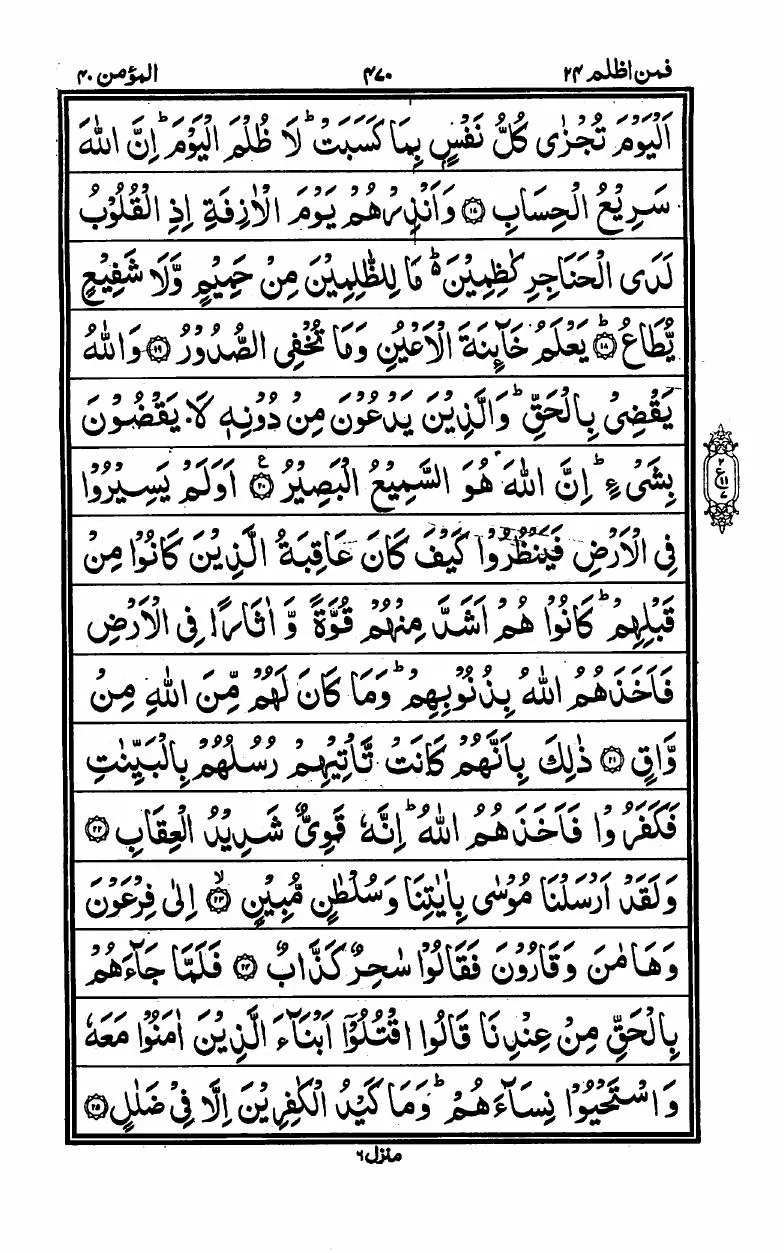 فمن اظلم ۲۴
۴۷۰
المؤمن ۴۰
اَلْيَوْمَ تُجْزٰى كُلُّ نَفْسٍۭ بِمَا كَسَبَتْ ؕ لَا ظُلْمَ الْيَوْمَ ؕ اِنَّ اللّٰهَ
سَرِيْعُ الْحِسَابِ ۝۱۷ وَاَنْذِرْهُمْ يَوْمَ الْاٰزِفَةِ اِذِ الْقُلُوْبُ
لَدَى الْحَنَاجِرِ كٰظِمِيْنَ ؕ۬ مَا لِلظّٰلِمِيْنَ مِنْ حَمِيْمٍ وَّلَا شَفِيْعٍ
يُّطَاعُ ؕ ۝۱۸ يَعْلَمُ خَآئِنَةَ الْاَعْيُنِ وَمَا تُخْفِى الصُّدُوْرُ ۝۱۹ وَاللّٰهُ
يَقْضِىْ بِالْحَقِّ ؕ وَالَّذِيْنَ يَدْعُوْنَ مِنْ دُوْنِهٖ لَا يَقْضُوْنَ
بِشَىْءٍ ؕ اِنَّ اللّٰهَ هُوَ السَّمِيْعُ الْبَصِيْرُ ۝۲۰ اَوَلَمْ يَسِيْرُوْا
فِى الْاَرْضِ فَيَنْظُرُوْا كَيْفَ كَانَ عَاقِبَةُ الَّذِيْنَ كَانُوْا مِنْ
قَبْلِهِمْ ؕ كَانُوْا هُمْ اَشَدَّ مِنْهُمْ قُوَّةً وَّ اٰثَارًا فِى الْاَرْضِ
فَاَخَذَهُمُ اللّٰهُ بِذُنُوْبِهِمْ ؕ وَمَا كَانَ لَهُمْ مِّنَ اللّٰهِ مِنْ
وَّاقٍ ۝۲۱ ذٰلِكَ بِاَنَّهُمْ كَانَتْ تَّاْتِيْهِمْ رُسُلُهُمْ بِالْبَيِّنٰتِ
فَكَفَرُوْا فَاَخَذَهُمُ اللّٰهُ ؕ اِنَّهٗ قَوِىٌّ شَدِيْدُ الْعِقَابِ ۝۲۲
وَلَقَدْ اَرْسَلْنَا مُوْسٰى بِاٰيٰتِنَا وَسُلْطٰنٍ مُّبِيْنٍ ۙ ۝۲۳ اِلٰى فِرْعَوْنَ
وَهَامٰنَ وَقَارُوْنَ فَقَالُوْا سٰحِرٌ كَذَّابٌ ۝۲۴ فَلَمَّا جَآءَهُمْ
بِالْحَقِّ مِنْ عِنْدِنَا قَالُوا اقْتُلُوْۤا اَبْنَآءَ الَّذِيْنَ اٰمَنُوْا مَعَهٗ
وَاسْتَحْيُوْا نِسَآءَهُمْ ؕ وَمَا كَيْدُ الْكٰفِرِيْنَ اِلَّا فِىْ ضَلٰلٍ ۝۲۵
۲
ع
۱۱
۷
منزل ۶